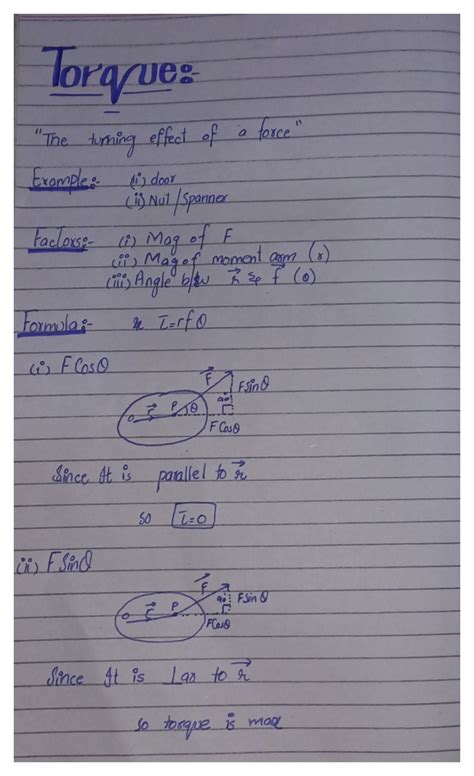 Torque:-
"The turning effect of a force"
Example:- (i) door
(ii) Nut/Spanner
Factors:- (i) Mag of F
(ii) Mag of moment arm (r)
(iii) Angle b/w r⃗ & f⃗ (θ)
Formula:- τ=rfθ
(i) FCosθ
F⃗
FSinθ
90°
O r⃗ P θ
FCosθ
Since It is parallel to r⃗
so τ=0
(ii) FSinθ
F⃗
90° FSinθ
O r⃗ P
FCosθ
Since It is ⊥ar to r⃗
so torque is max